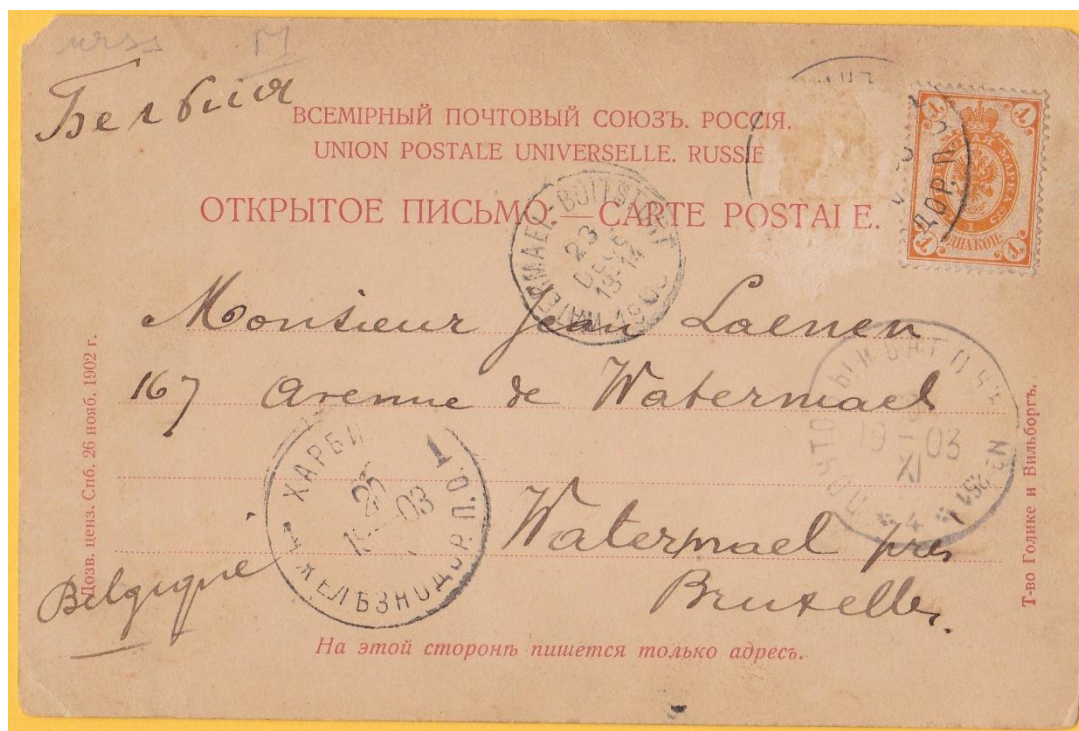 Бельгія
ВСЕМІРНЫЙ ПОЧТОВЫЙ СОЮЗЪ. РОССІЯ.
UNION POSTALE UNIVERSELLE. RUSSIE
ОТКРЫТОЕ ПИСЬМО — CARTE POSTALE.
ДОР. П.
1 1
1 1
WATERMAEL-BOITSFORT
23
DEC
13-14
1903
Monsieur Jean Laenen
167 Avenue de Watermael
Watermael près
Bruxelles.
Belgique
ПОЧТОВЫЙ ВАГ
№ 251
19-03
XI
4
1 ХАРБИ
1 ЖЕЛѢЗНОДОР. П. О.
03
Дозв. ценз. Спб. 26 нояб. 1902 г.
Т-во Голике и Вильборгъ.
На этой сторонѣ пишется только адресъ.